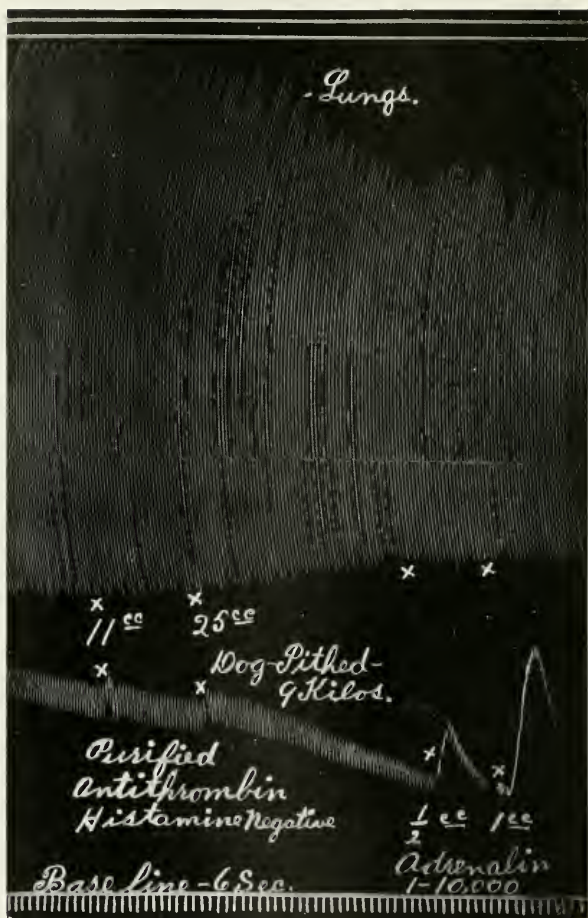 - Lungs.
x x
x x
11 cc 25 cc
x Dog-Pithed-
x 9 Kilos.
x
x
Purified
Antithrombin
Histamine Negative
1/2 cc 1 cc
Adrenalin
1-10,000
Base line-6 Sec.